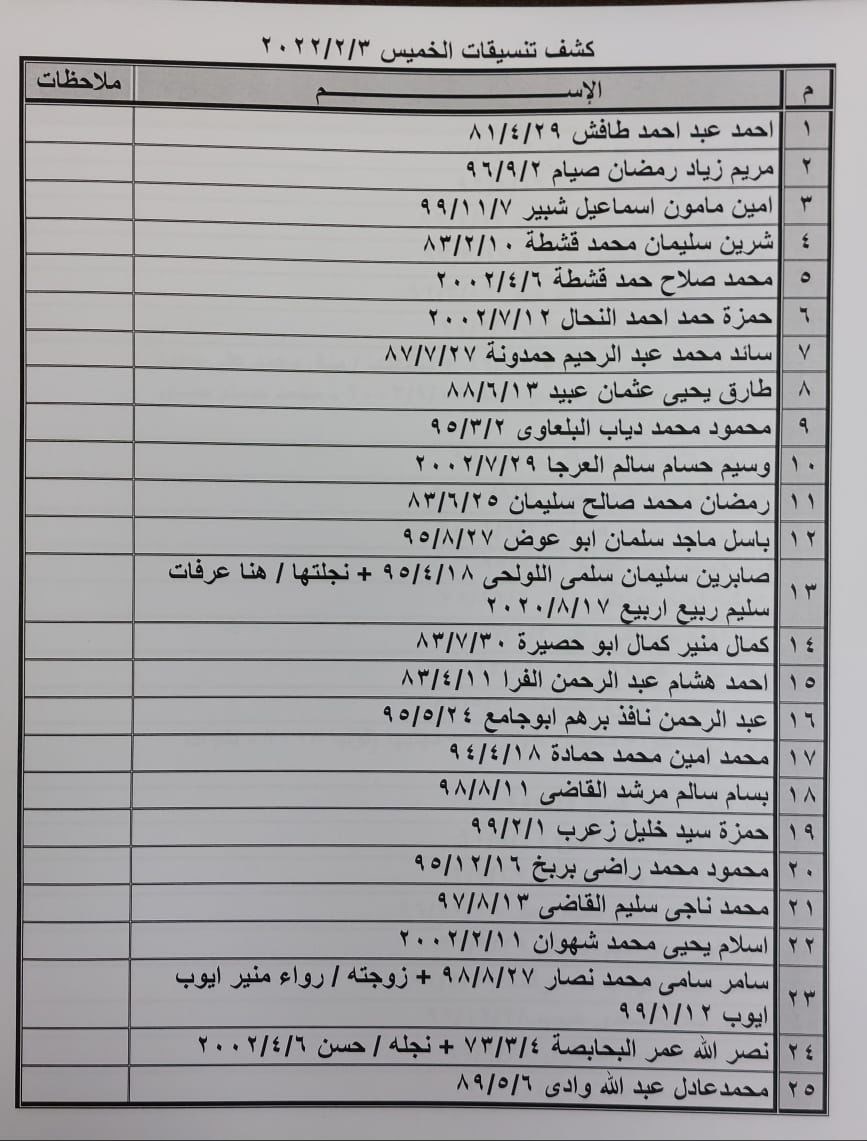 كشف تنسيقات الخميس ٢٠٢٢/٢/٣
م الإســـــــــم ملاحظات
١ احمد عبد احمد طافش ٨١/٤/٢٩
٢ مريم زياد رمضان صيام ٩٦/٩/٢
٣ امين مامون اسماعيل شبير ٩٩/١١/٧
٤ شرين سليمان محمد قشطة ٨٣/٢/١٠
٥ محمد صلاح حمد قشطة ٢٠٠٢/٤/٦
٦ حمزة حمد احمد النحال ٢٠٠٢/٧/١٢
٧ سائد محمد عبد الرحيم حمدونة ٨٧/٧/٢٧
٨ طارق يحيى عثمان عبيد ٨٨/٦/١٣
٩ محمود محمد دياب البلعاوى ٩٥/٣/٢
١٠ وسيم حسام سالم العرجا ٢٠٠٢/٧/٢٩
١١ رمضان محمد صالح سليمان ٨٣/٦/٢٥
١٢ باسل ماجد سلمان ابو عوض ٩٥/٨/٢٧
١٣ صابرين سليمان سلمى اللولحى ٩٥/٤/١٨ + نجلتها / هنا عرفات
سليم ربيع اربيع ٢٠٢٠/٨/١٧
١٤ كمال منير كمال ابو حصيرة ٨٣/٧/٣٠
١٥ احمد هشام عبد الرحمن الفرا ٨٣/٤/١١
١٦ عبد الرحمن نافذ برهم ابوجامع ٩٥/٥/٢٤
١٧ محمد امين محمد حمادة ٩٤/٤/١٨
١٨ بسام سالم مرشد القاضى ٩٨/٨/١١
١٩ حمزة سيد خليل زعرب ٩٩/٢/١
٢٠ محمود محمد راضى بربخ ٩٥/١٢/١٦
٢١ محمد ناجى سليم القاضى ٩٧/٨/١٣
٢٢ اسلام يحيى محمد شهوان ٢٠٠٢/٢/١١
٢٣ سامر سامى محمد نصار ٩٨/٨/٢٧ + زوجته / رواء منير ايوب
ايوب ٩٩/١/١٢
٢٤ نصر الله عمر البحابصة ٧٣/٣/٤ + نجله / حسن ٢٠٠٢/٤/٦
٢٥ محمدعادل عبد الله وادى ٨٩/٥/٦